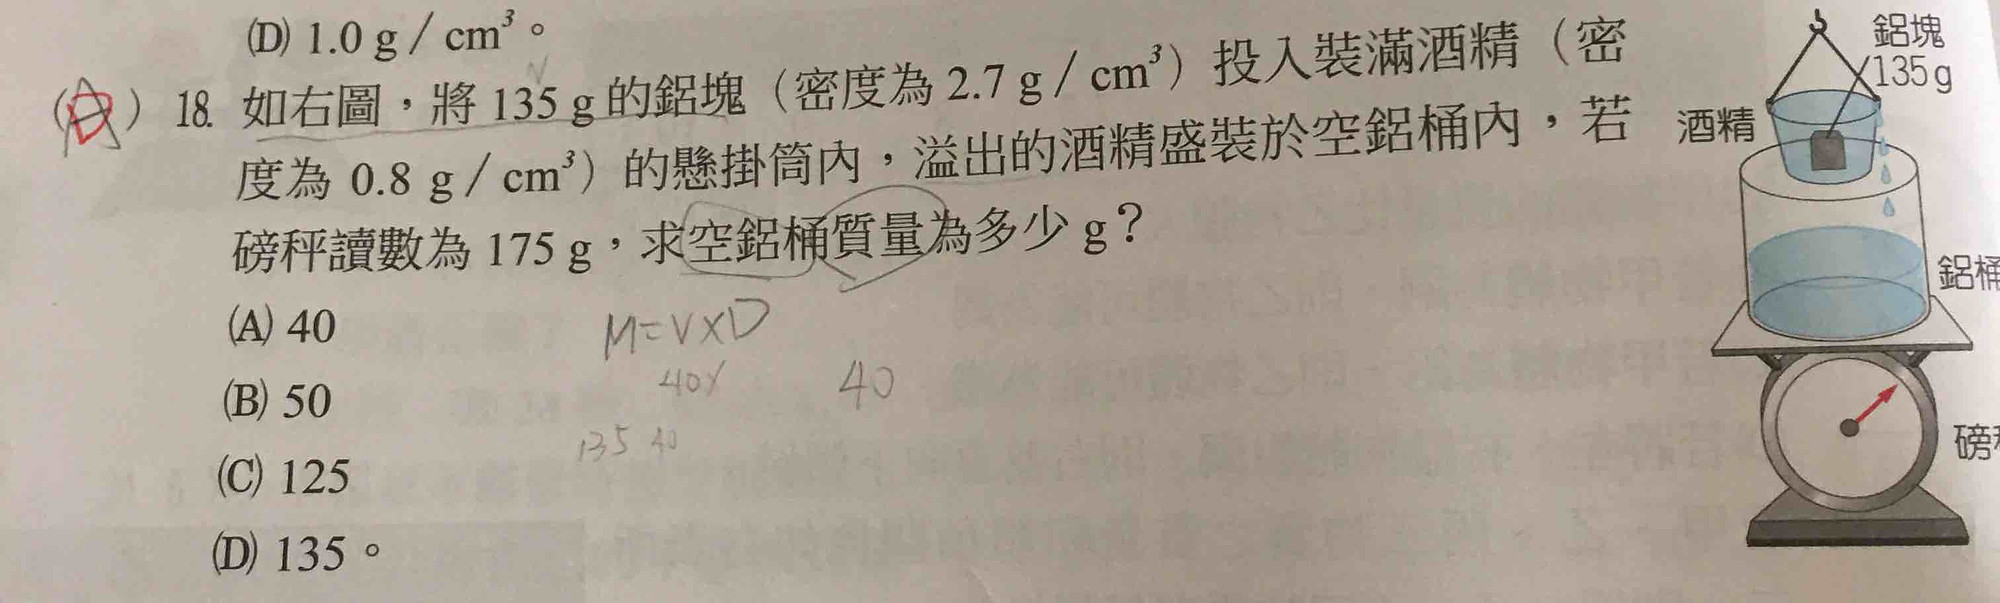 (D) 1.0 g / cm³。
( ) 18. 如右圖，將 135 g 的鋁塊（密度為 2.7 g / cm³）投入裝滿酒精（密
度為 0.8 g / cm³）的懸掛筒內，溢出的酒精盛裝於空鋁桶內，若
磅秤讀數為 175 g，求空鋁桶質量為多少 g？
(A) 40
(B) 50
(C) 125
(D) 135。
M=V×D
40
40
135 40
鋁塊
135 g
酒精
鋁桶
磅